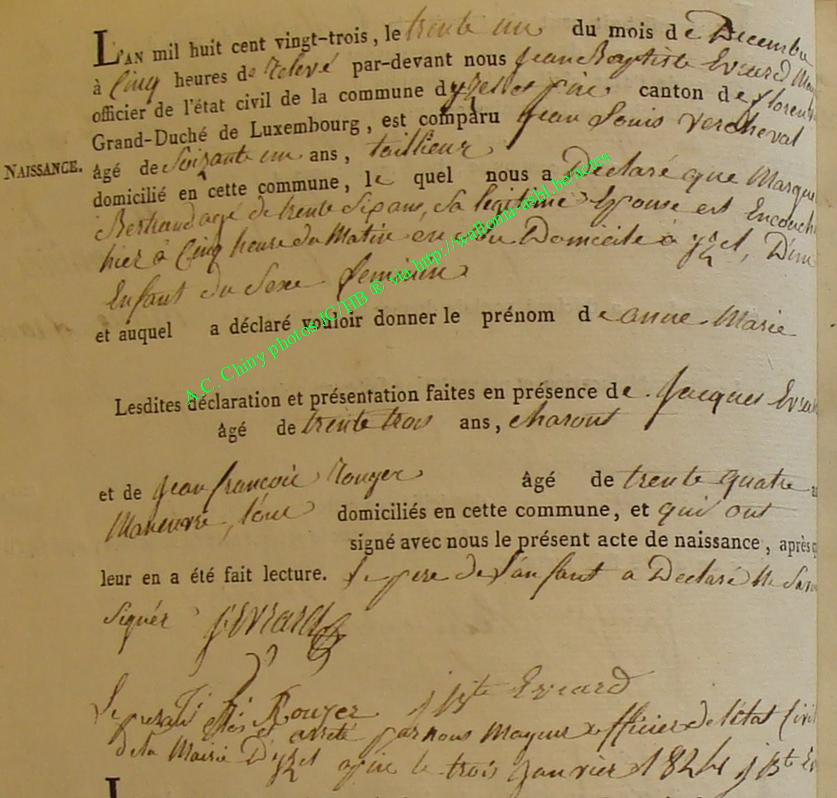 L'AN mil huit cent vingt-trois, le trente un du mois de Decembre
à Cinq heures de Relevé par-devant nous Jean Baptiste Evrard May
officier de l'état civil de la commune d'yzel et pin canton de florenv
Grand-Duché de Luxembourg, est comparu Jean Louis Vercheval
NAISSANCE.
âgé de Soixante un ans, tailleur
domicilié en cette commune, le quel nous a Déclaré que Margue
Bertrand agé de trente Six ans, Sa légitime Epouse est Encouch
hier à Cinq heure du Matin en Domicile à yzel, D'un
Enfant du Sexe feminin
et auquel a déclaré vouloir donner le prénom de anne Marie
Lesdites déclaration et présentation faites en présence de Jacques Evrar
âgé de trente trois ans, charont
et de Jean françois Rouyer âgé de trente quatre a
Maneuvre, domiciliés en cette commune, et qui ont
signé avec nous le présent acte de naissance, après q
leur en a été fait lecture. Le pere de l'anfant a Declaré Ne Savoi
Signér J Evrard
J f Rouyer J Bte Evrard
Le presant clos et arreté par nous Mayeur officier de l'état Civil
de la Mairie D'yzel et pin le trois Janvier 1824 J Bte Ev
A.C. Chiny photos JG/HB ® via http://wallonia-asbl.be/actes